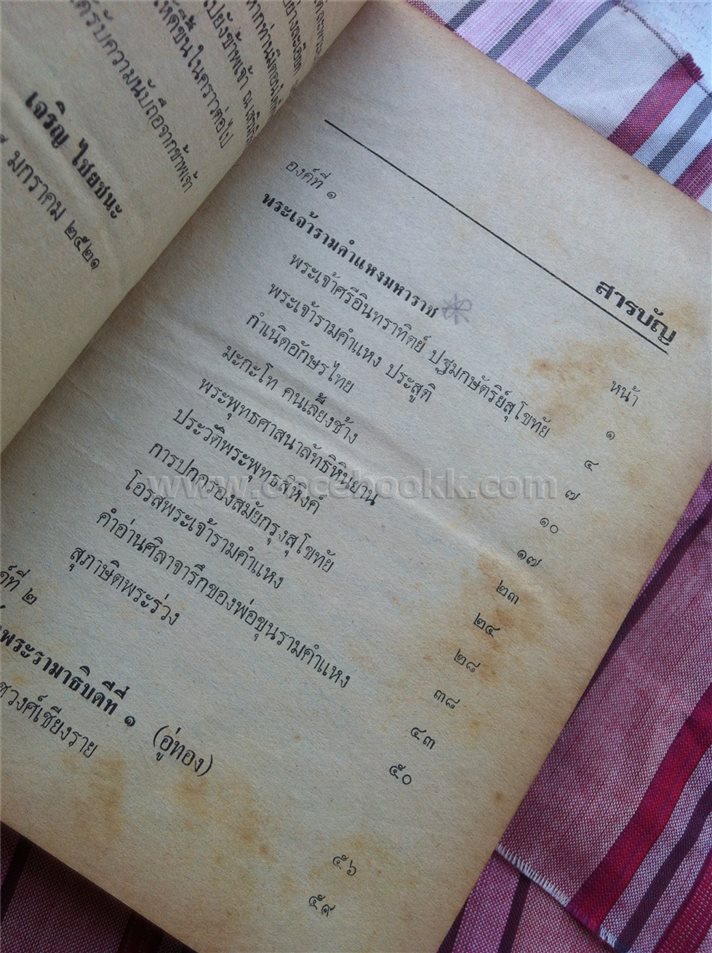 อย่างละเอียด
ไปยังข้าพเจ้า ณ
ให้ดีขึ้นในคราวต่อไป
ได้รับความนับถือจากข้าพเจ้า
เจริญ ไชยชนะ
มกราคม ๒๕๒๑
สารบัญ
องค์ที่ ๑ หน้า
พระเจ้ารามคำแหงมหาราช ๑
พระเจ้าศรีอินทราทิตย์ ปฐมกษัตริย์สุโขทัย ๔
พระเจ้ารามคำแหง ประสูติ ๗
กำเนิดอักษรไทย ๑๐
มะกะโท คนเลี้ยงช้าง ๑๗
พระพุทธศาสนาลัทธิหินยาน ๒๓
ประวัติพระพุทธสิหิงค์ ๒๔
การปกครองสมัยกรุงสุโขทัย ๒๘
โอรสพระเจ้ารามคำแหง ๓๘
คำอ่านศิลาจารึกของพ่อขุนรามคำแหง ๔๓
สุภาษิตพระร่วง ๕๐
ที่ ๒
พระรามาธิบดีที่ ๑ (อู่ทอง) ๕๖
วงศ์เชียงราย ๕๙